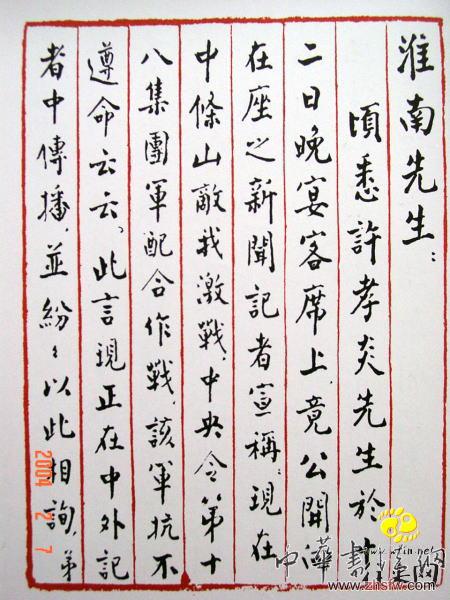 淮南先生：
頃悉許孝炎先生於
二日晚宴客席上，竟公開向
在座之新聞記者宣稱：現在
中條山敵我激戰，中央令第十
八集團軍配合作戰，該軍抗不
遵命云云。此言現正在中外記
者中傳播，並紛〻以此相詢。弟
2004 2 7
中華書法網
www.zhsfw.com